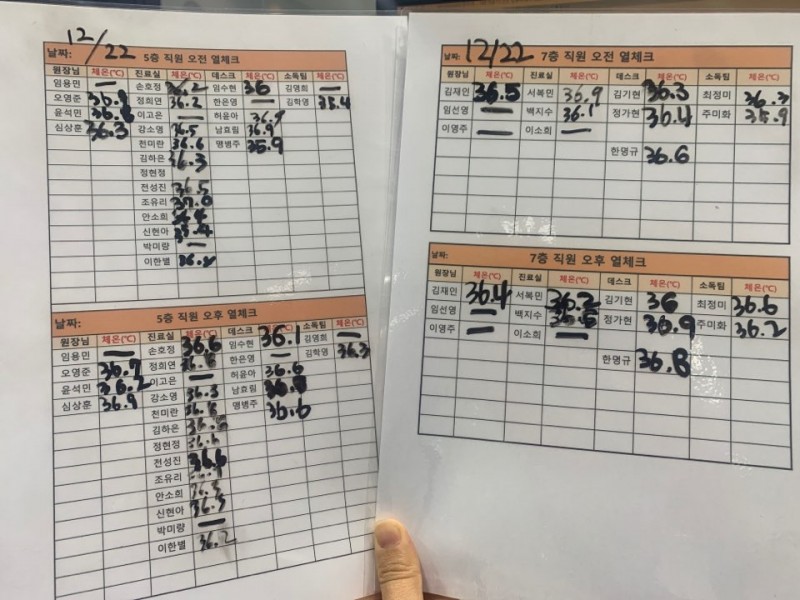 날짜: 12/22 5층 직원 오전 열체크
원장님 체온(℃) 진료실 체온(℃) 데스크 체온(℃) 소독팀 체온(℃)
임용민 — 손호정 36.2 임수현 36 김영희 —
오영준 정희연 36.2 한은영 — 김학영 35.4
윤석민 36.8 이고은 — 허윤아 36.9
심상훈 36.3 강소영 36.5 남효림 36.9
천미란 36.6 명병주 35.9
김하은 36.3
정현정
전성진 36.5
조유리 37.0
안소희
신현아
박미랑 —
이한별 36.2
5층 직원 오후 열체크
날짜:
원장님 체온(℃) 진료실 체온(℃) 데스크 체온(℃) 소독팀 체온(℃)
임용민 — 손호정 36.6 임수현 36.1 김영희 —
오영준 36.7 정희연 36.8 한은영 — 김학영 36.3
윤석민 36.2 이고은 — 허윤아 36.6
심상훈 36.9 강소영 36.3 남효림
천미란 명병주 36.6
김하은
정현정 36.6
전성진 36.6
조유리
안소희 36.5
신현아 36.5
박미랑 —
이한별 36.2
날짜: 12/22 7층 직원 오전 열체크
원장님 체온(℃) 진료실 체온(℃) 데스크 체온(℃) 소독팀 체온(℃)
김재인 36.5 서복민 36.9 김기현 36.3 최정미 36.3
임선영 — 백지수 36.1 정가현 36.4 주미화 35.9
이영주 — 이소희 —
한명규 36.6
날짜: 7층 직원 오후 열체크
원장님 체온(℃) 진료실 체온(℃) 데스크 체온(℃) 소독팀 체온(℃)
김재인 36.4 서복민 36.2 김기현 36 최정미 36.6
임선영 — 백지수 정가현 36.9 주미화 36.2
이영주 — 이소희 —
한명규 36.8